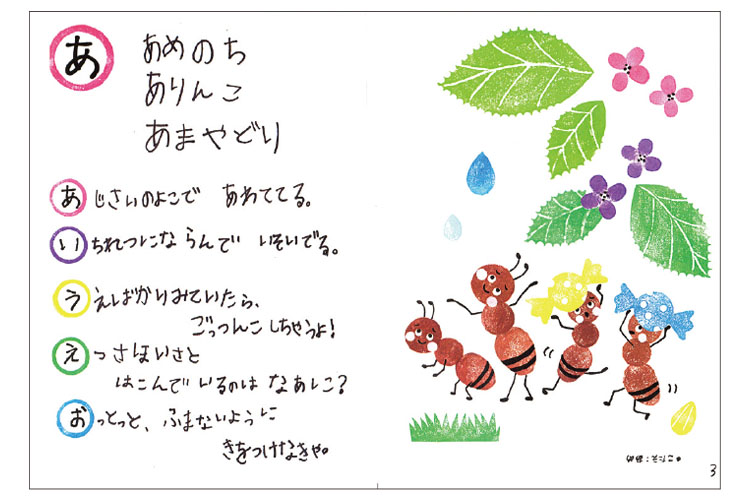 あ
あめのち
ありんこ
あまやどり
あじさいのよこで あわててる。
いちれつにならんで いそいでる。
うえばかりみていたら、
ごっつんこしちゃうよ!
えっさほいさと
はこんで いるのは なあに?
おっとっと、ふまないように
きをつけなきゃ
3